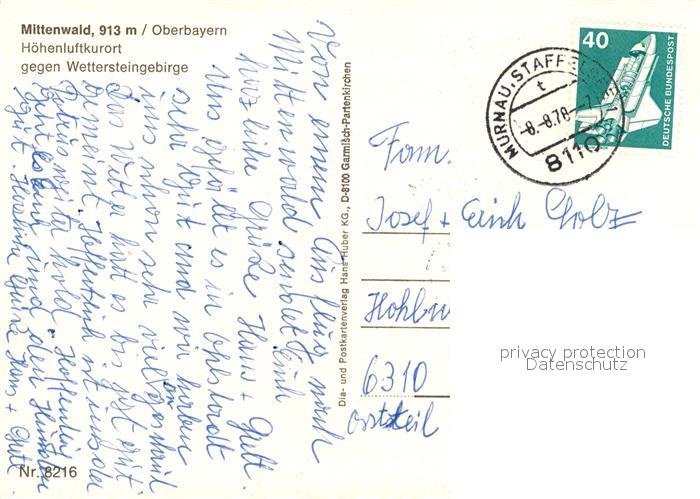 Mittenwald, 913 m / Oberbayern
Höhenluftkurort
gegen Wettersteingebirge
Von einem Ausflug nach
Mittenwald sendet Euch
herzliche Grüße Hans + Gretl.
Uns gefällt es in Ohlstadt
sehr gut und wir haben
uns schon sehr viel
Das Wetter hat es bis jetzt gut
gemeint. Hoffentlich ist
weiter hold. Hoffentlich
geht es und den
gut. Herzliche Grüße Hans + Gretl.
Nr. 8216
Dia- und Postkartenverlag Hans Huber KG., D-8100 Garmisch-Partenkirchen
MURNAU, STAFFEL
t
-8.-8.78
8110
40
DEUTSCHE BUNDESPOST
Fam.
Josef + Erich Golz
Hohlbu
6310
Ortsteil
privacy protection
Datenschutz